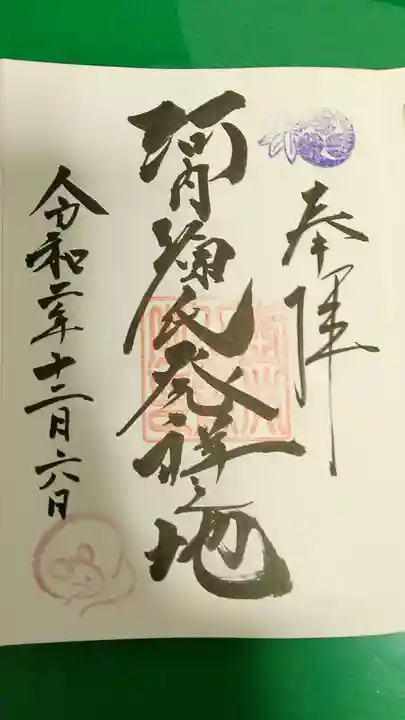 奉拝
河内源氏発祥之地
令和二年十二月六日